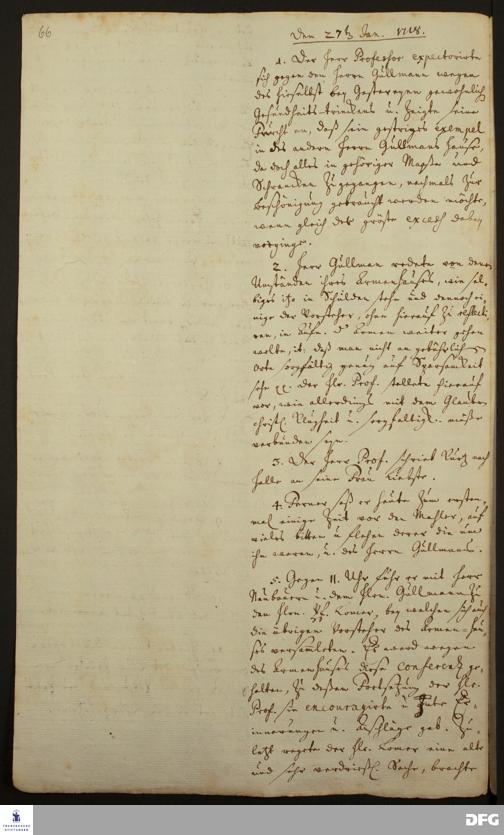 66
Den 27t Jan. 1718.
1. Der Herr Professor expectorirte
sich gegen den Herrn Gullmann wegen
des hieselbst bey Gastereyen gewöhnlich
Gesundheits-trinckens u. zeigte seine
Furcht an, daß sein gestriges exempel
in des andern Herrn Gullmanns Hause,
da doch alles in gehöriger Maaße und
Schrancken zugegangen, nachmals zur
Beschönigung gebraucht werden möchte,
wenn gleich der gröste excess dabey
vorginge.
2. Herr Gullman redete von denen
Umständen ihres Armenhauses, wie sel-
biges itzo in Schulden stehe und dennoch ei-
nige der Vorsteher, ohne hierauf zu reflecti-
ren, in Aufn. d. Armen weiter gehen
wolte, it. daß man nicht an gebührlichen
Orte sorgfältig genug auf Sparsamkeit
sehe pp. Der Hr. Prof. stellete hierauf
vor, wie allerdings mit dem Glauben
christl. Klugheit u. sorgfältigk. müste
verbunden seyn.
3. Der Herr Prof. schrieb kurtz nach
Halle an seine Frau Liebste.
4. Ferner saß er heute zum ersten-
mal einige Zeit vor den Mahler, auf
vieles bitten u flehen derer die um
ihn waren, u. des Herrn Gullmanns.
5. Gegen 11. Uhr fuhr er mit Herr
Neubauern u. dem Hrn. Gullmann zu
dem Hrn. Lomer, bey welchen sich auch
die übrigen Vorsteher des Armen-Hau-
ses versamleten. Es ward wegen
des Armenhauses diese conferentz ge-
halten, zu deßen Fortsetzung der Hr.
Prof. sie encouragirte u gute Er-
innerungen u. Anschläge gab. Zu-
letzt regete der Hr. Lomer eine alte
und sehr verdriesl. Sache, brachte
FRANCKESCHE STIFTUNGEN
DFG